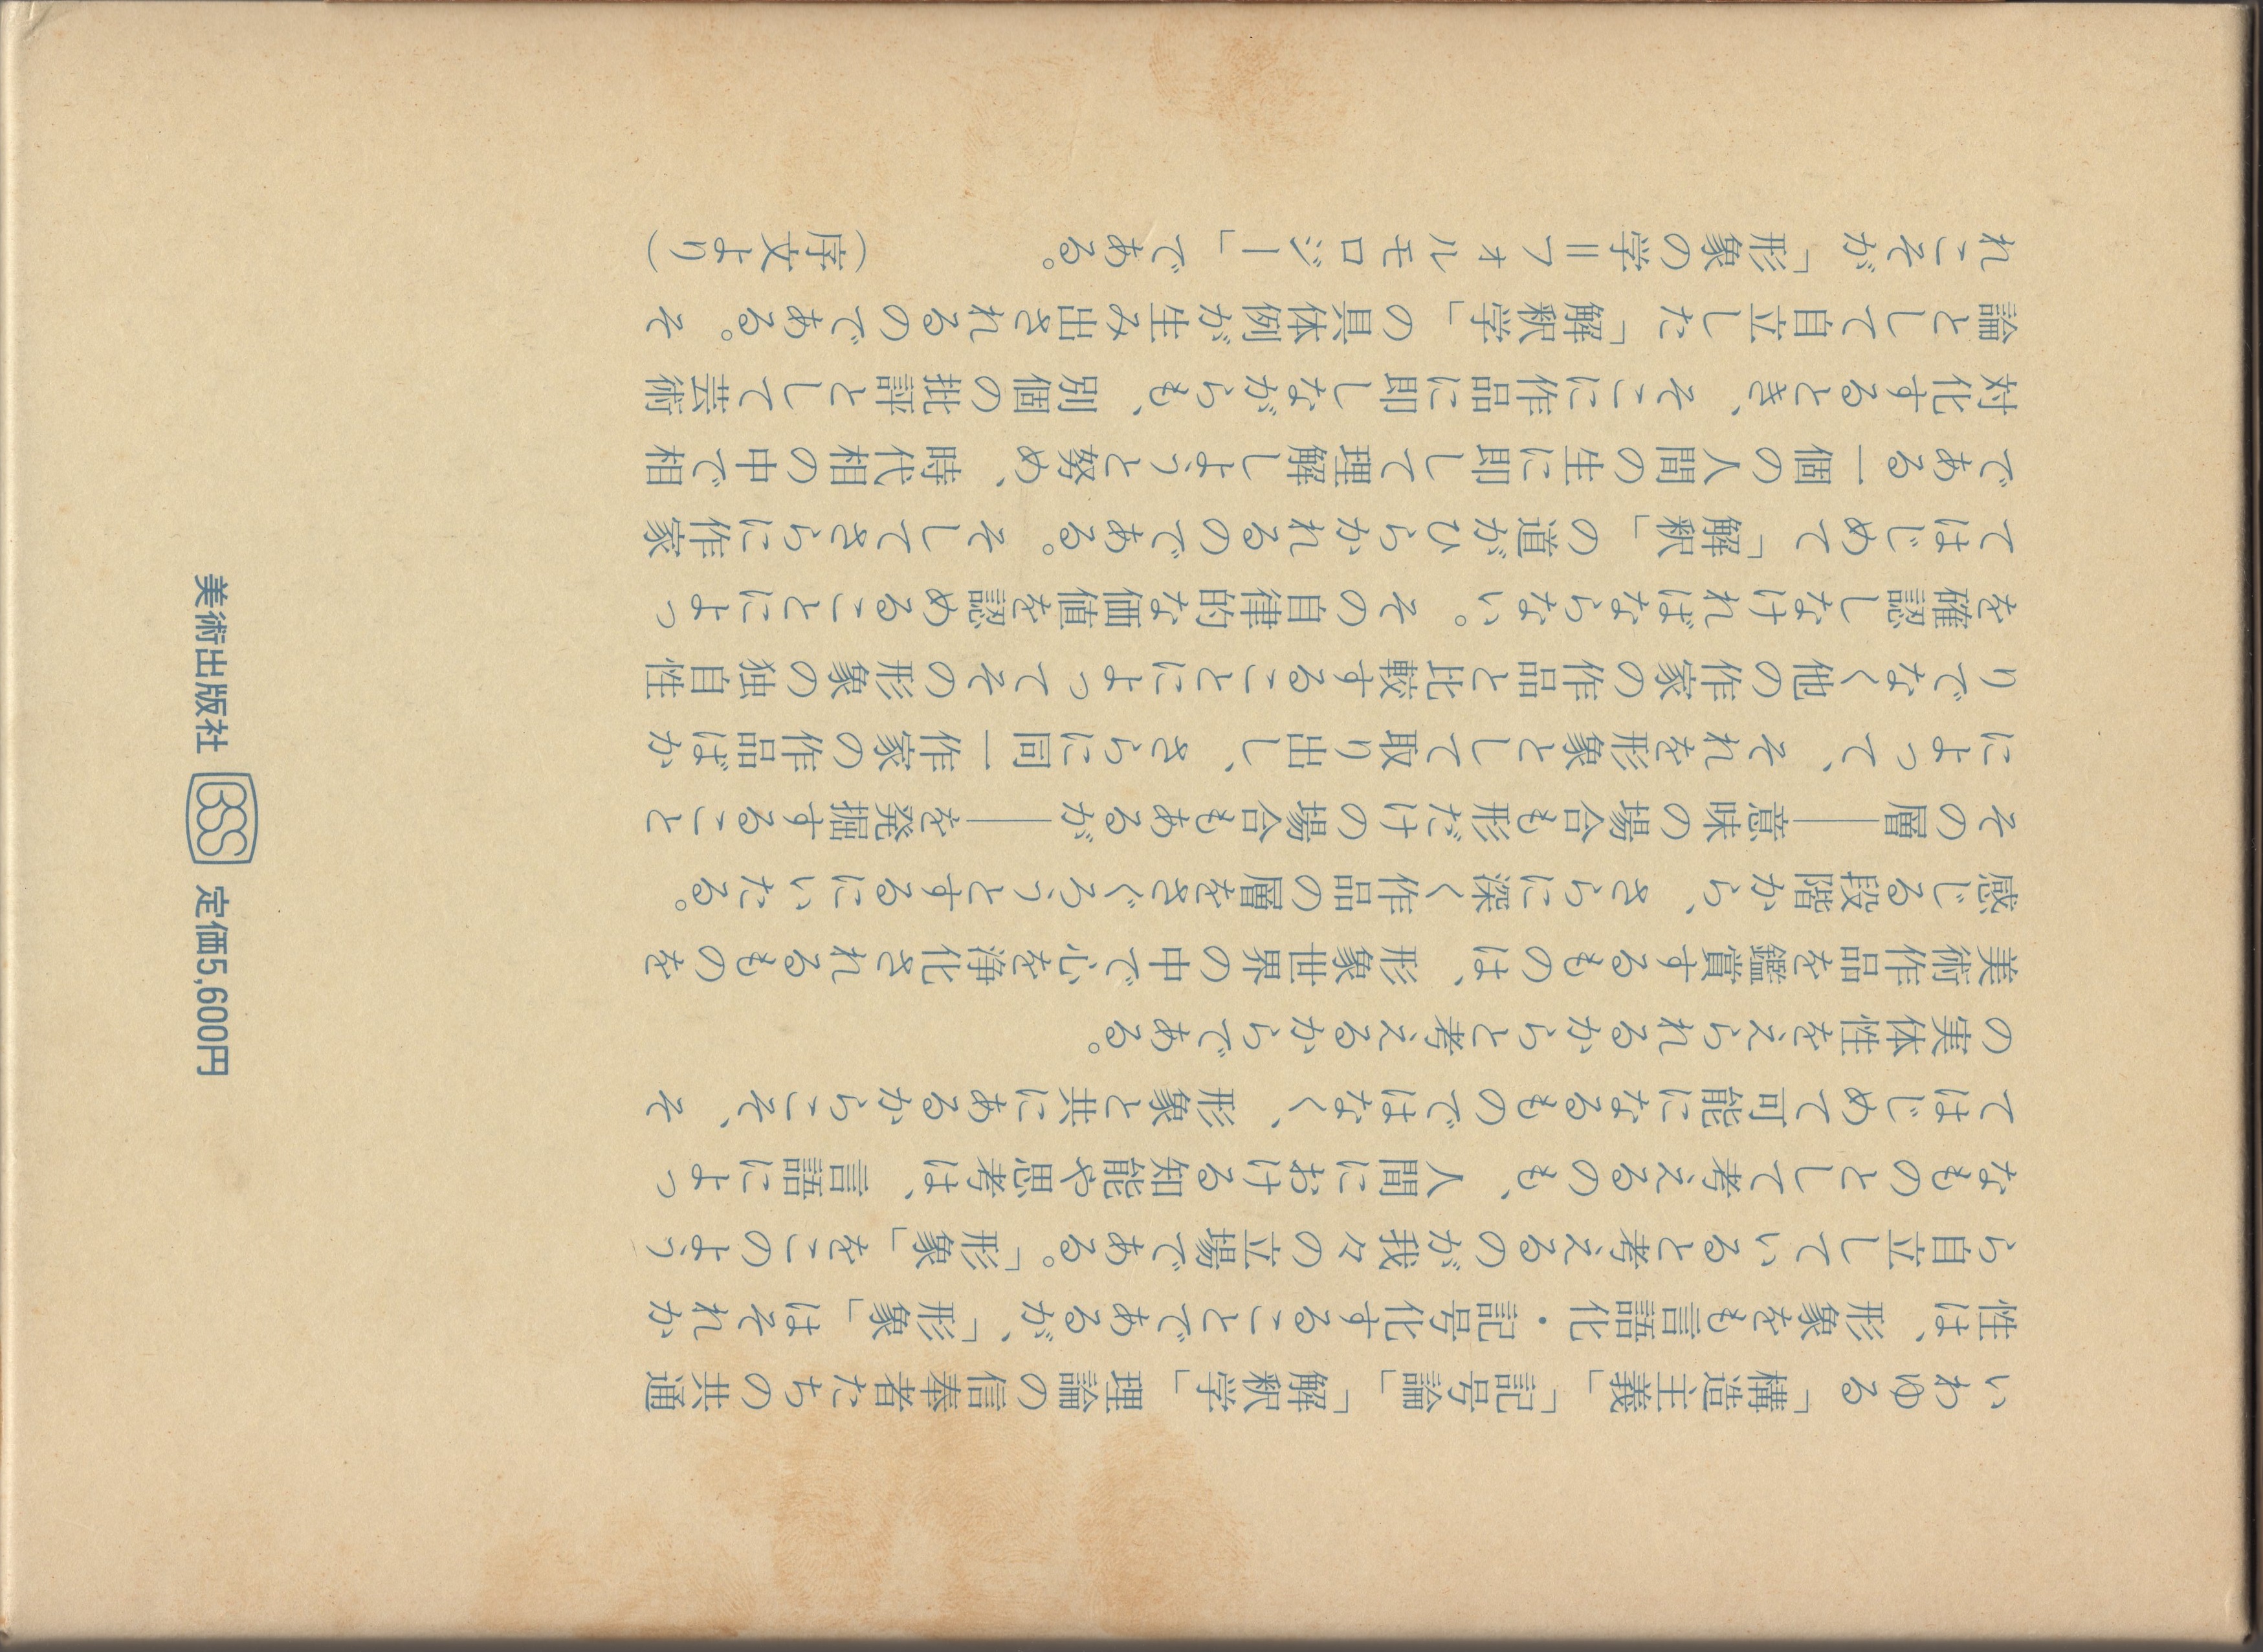 いわゆる「構造主義」「記号論」「解釈学」理論の信奉者たちの共通
性は、形象をも言語化・記号化することであるが、「形象」はそれか
ら自立していると考えるのが我々の立場である。「形象」をこのよう
なものとして考えるのも、人間における知能や思考は、言語によっ
てはじめて可能になるものではなく、形象と共にあるからこそ、そ
の実体性をえられるからと考えるからである。
美術作品を鑑賞するものは、形象世界の中で心を浄化されるものを
感じる段階から、さらに深く作品の層をさぐろうとするにいたる。
その層――意味の場合も形だけの場合もあるが――を発掘すること
によって、それを形象として取り出し、さらに同一作家の作品ばか
りでなく他の作家の作品と比較することによってその形象の独自性
を確認しなければならない。その自律的な価値を認めることによっ
てはじめて「解釈」の道がひらかれるのである。そしてさらに作家
である一個の人間の生に即して理解しようと努め、時代相の中で相
対化するとき、そこに作品に即しながらも、別個の批評として芸術
論として自立した「解釈学」の具体例が生み出されるのである。そ
れこそが「形象の学＝フォルモロジー」である。　（序文より）
美術出版社 BSS 定価5,600円